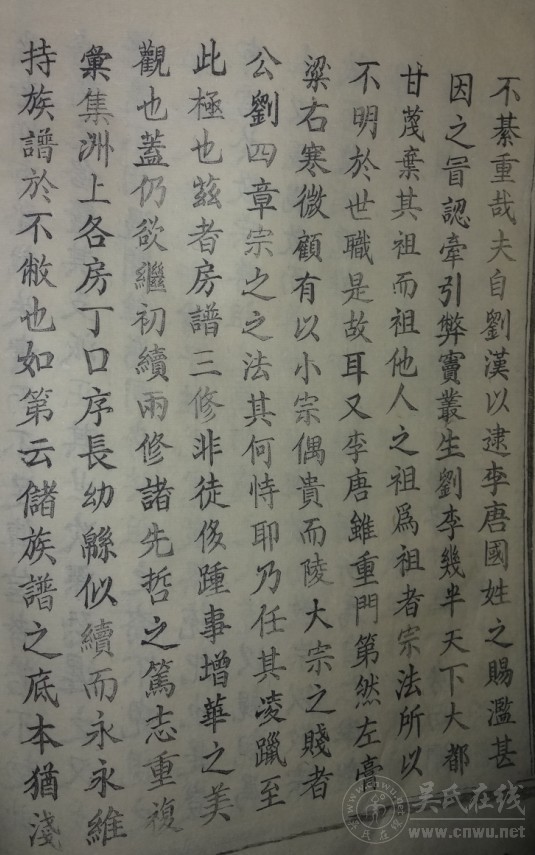 不綦重哉夫自劉漢以逮李唐國姓之賜濫甚
因之冒認牽引弊竇叢生劉李幾半天下大都
甘蔑棄其祖而祖他人之祖爲祖者宗法所以
不明於世職是故耳又李唐雖重門第然左膏
粱右寒微顧有以小宗偶貴而陵大宗之賤者
公劉四章宗之之法其何恃耶乃任其凌躐至
此極也茲者房譜三修非徒侈踵事增華之美
觀也蓋仍欲繼初續兩修諸先哲之篤志重複
彙集洲上各房丁口序長幼緜似續而永永維
持族譜於不敝也如第云儲族譜之底本猶淺
吴氏在线
www.cnwu.net